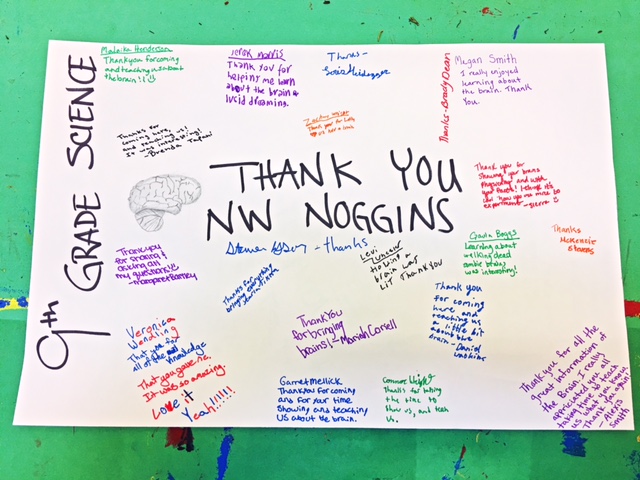 9th GRADE SCIENCE
Malaika Henderson
Thank you for coming
and teaching us about
the brain!!
Derek Morris
Thank you for
helping me learn
about the brain &
lucid dreaming.
Thanks -
Megan Smith
I really enjoyed
learning about
the brain. Thank
You.
Thanks - Brady Dean
Thanks for
coming here,
and teaching us!
It was interesting!
- Brenda
Thank you for
THANK YOU
NW NOGGINS
Thank you for
showing your brains
and with
- sierra
- thanks
Thank you
for sharing &
asking all
my questions!!
- Margaret Barney
Levi
Holding a
brain was
lit Thank You
Gavin Boggs
Learning about
walking dead
zombie brains
was interesting!
Thanks
McKenzie
Stevens
Thanks for
bring
Thank You
for bringing
brains! - Mariah Corsell
Thank you
for coming
here and
teaching us
a little bit
about the
brain - Daniel
Veronica
Wendling
Thank you for
all of the
Knowledge
That you gave us.
It was so amazing.
Love it
Yeah!!!!!
Garret Mellick
Thank you for coming
and for your time
Showing and teaching
US about the brain.
Connor
Thanks for taking
the time to
show us, and teach
us.
Thank you for all the
great information of
the Brain. I really
appriciated yall
taking time to teach
us what you know
Thank you again
- Alexis
Smith